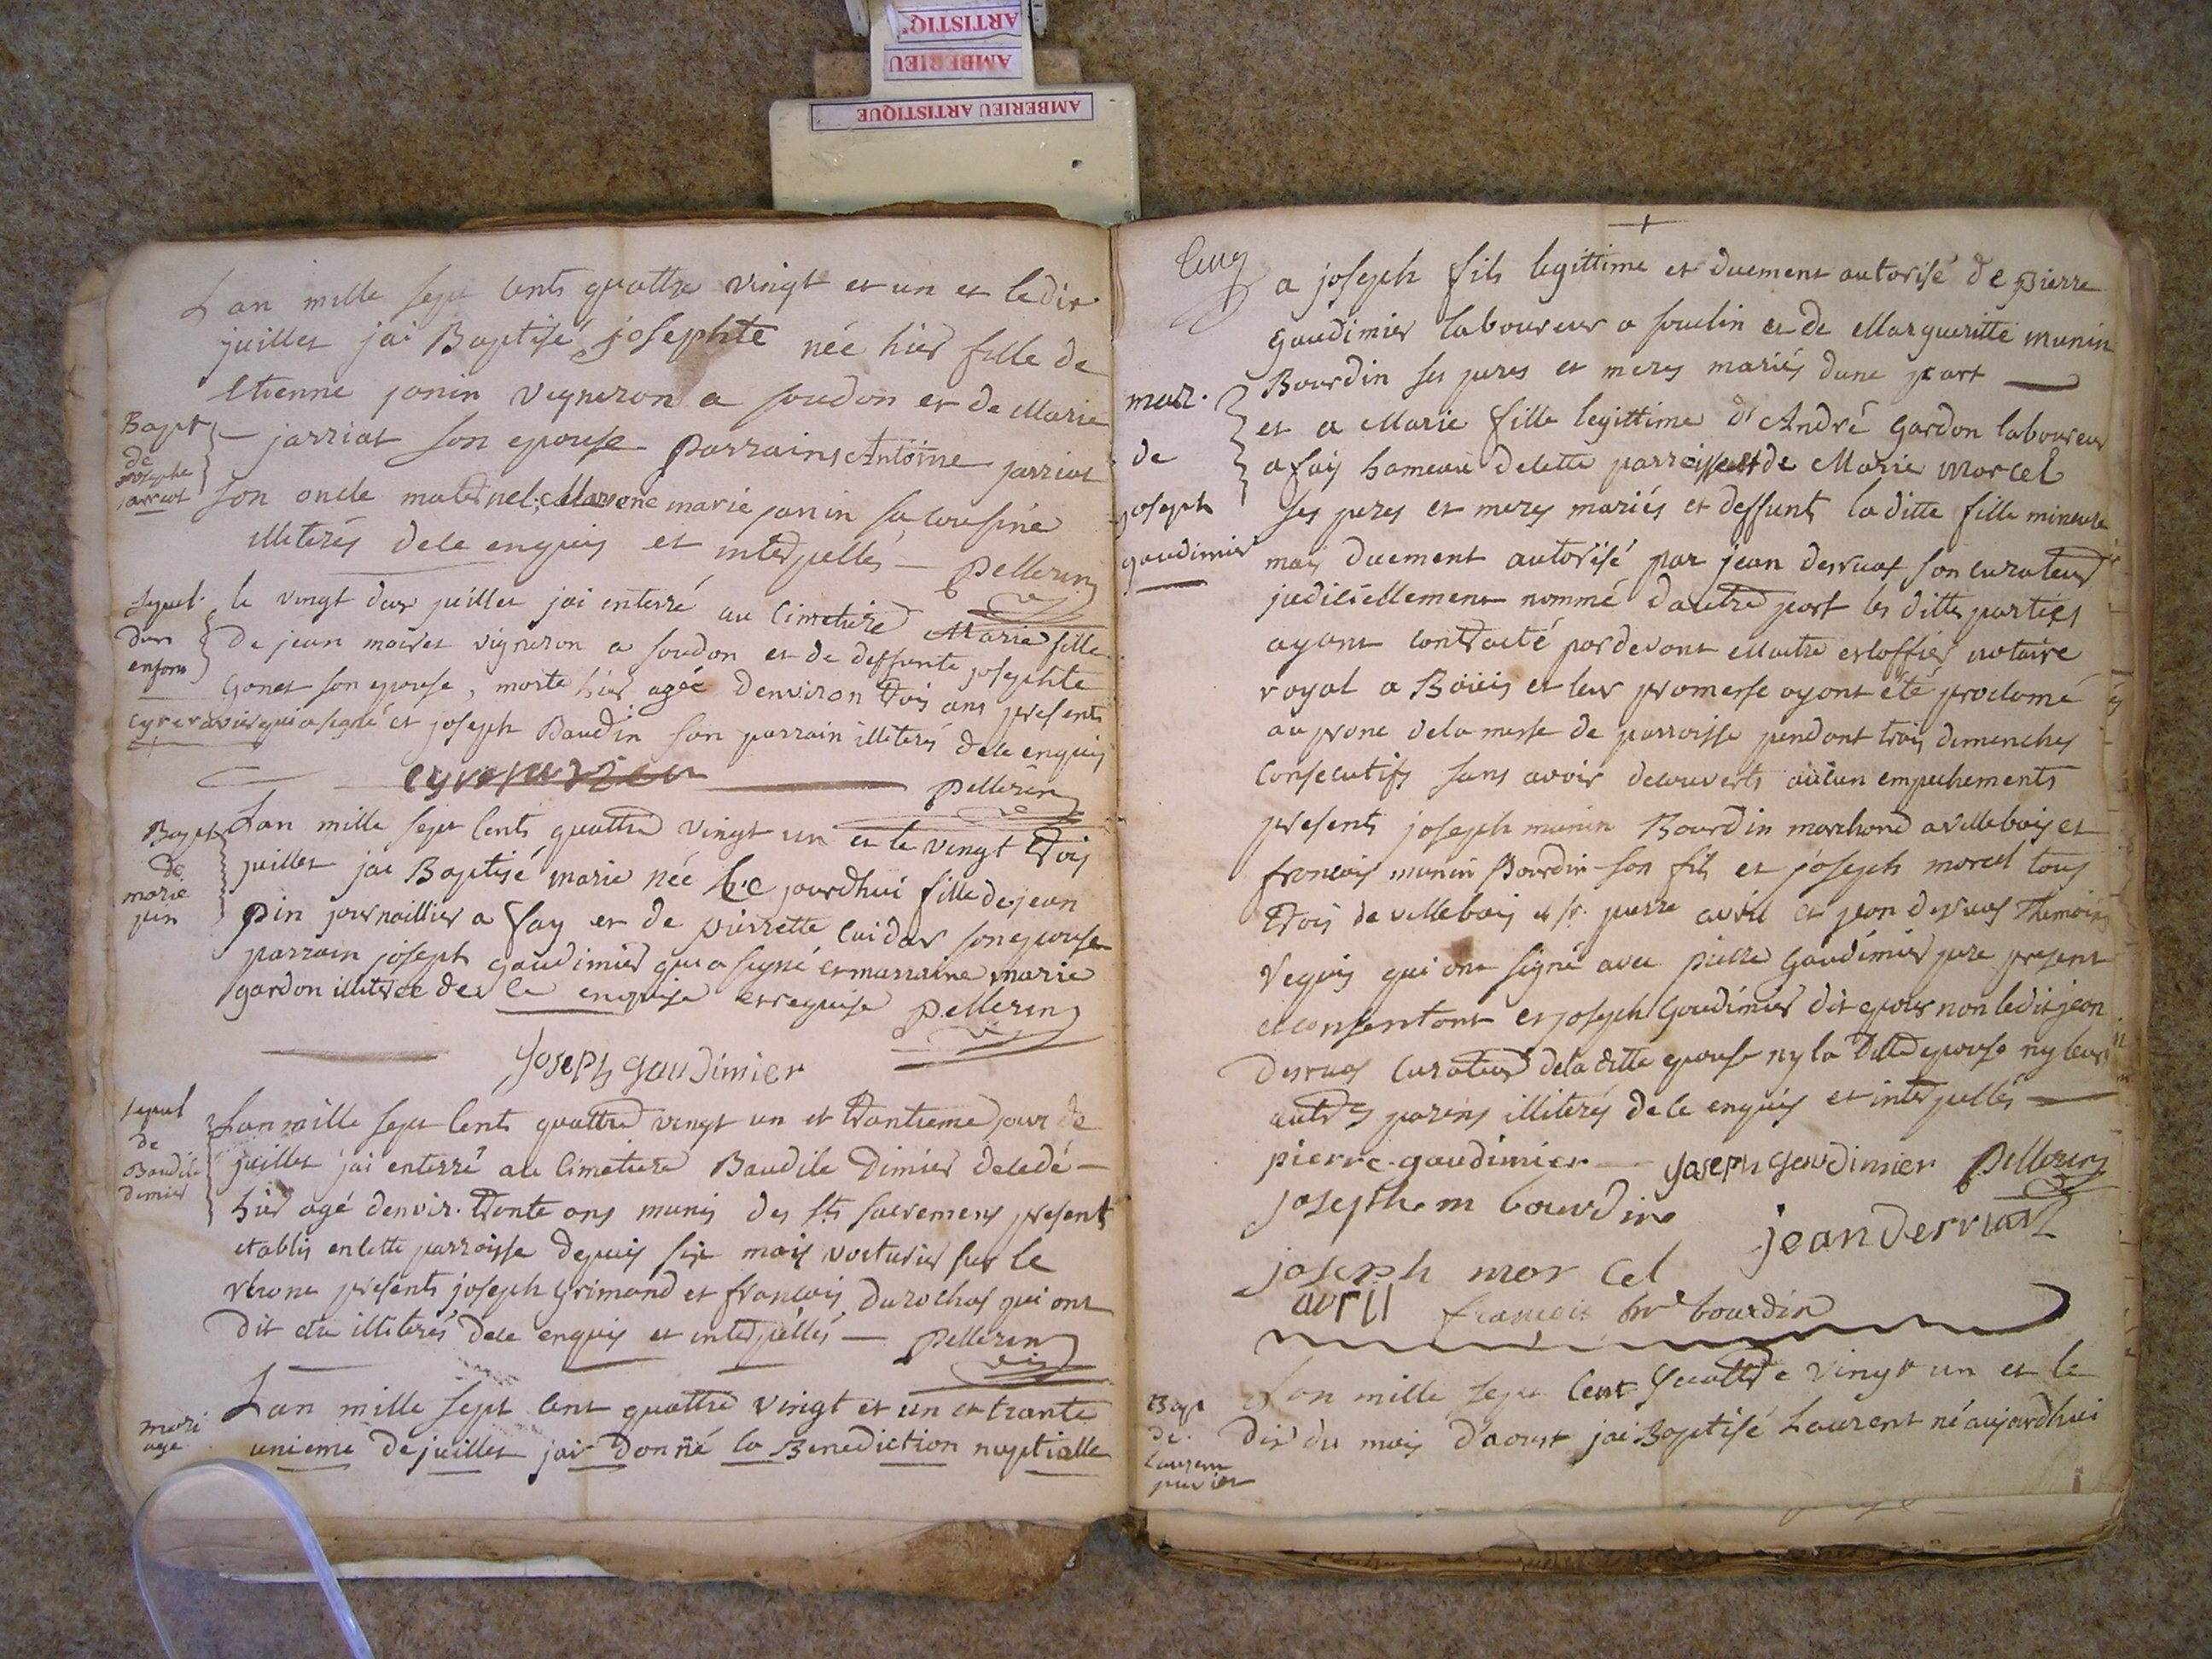 ARTISTIQ
AMBERIEU
AMBERIEU ARTISTIQUE
Lan mille sept cents quattre vingt et un et le dix
juillet jai Baptisé josephte née hier fille de
Etienne janin vigneron a soudon et de Marie
Bapt
de
josephe
jarriat
jarriat son epouse parrains Antoine jarriat
son oncle maternel marie janin sa cousine
illiterés de ce enquis et interpellés — pellerin
sepul.
dun
enfant
le vingt deux juillet jai enterré au cimetiere Marie fille
de jean moiret vigneron a soudon et de deffunte josephte
Gonet son epouse, morte hier agée denviron trois ans presents
qui a signé et joseph Baudin son parrain illiterés de ce enquis
pellerin
Bapt
de
marie
pin
Lan mille sept cents quattre vingt un et le vingt trois
juillet jai Baptisé marie née ce jourdhui fille de jean
pin journaillier a fay et de pierrette cuidar son epouse
parrain joseph gaudimier qui a signé et marraine marie
gardon illiterée de ce enquise et requise pellerin
joseph gaudimier
sepul
de
Baudile
dimier
Lan mille sept cents quattre vingt un et trantieme jour de
juillet jai enterré au cimetiere Baudile Dimier decedé —
hier agé denvir. trante ans munis des sts sacremens present
etablis en cette parroisse depuis six mois voiturier sur le
rhone presents joseph Grimand et francois Durochat qui ont
dit etre illiterés de ce enquis et interpellés — pellerin
mari
age
Lan mille sept cent quattre vingt et un et trante
unieme de juillet jai donné la Benediction nuptialle
a joseph fils legittime et duement autorisé de pierre
gaudimier laboureur a soulin et de Margueritte munin
Bourdin ses peres et meres mariés dune part —
mar.
de
joseph
gaudimier
et a Marie fille legittime d'André Gardon laboureur
a fay hameau de cette parroisse et de Marie morcel
ses peres et meres mariés et deffunts la ditte fille mineure
mais duement autorisé par jean derruaz son curateur
judiciellement nommé dautre part les dittes parties
ayant contracté pardevant Maitre notaire
royal a et leur promesse ayant été proclamé
au prone de la messe de parroisse pendant trois dimenches
consecutifs sans avoir decouverts aucun empechements
presents joseph munin Bourdin marchand a villebois et
francois munin Bourdin son fils et joseph morcel tous
trois de villebois et sr. pierre avril et jean derruas themoins
requis qui ont signé avec pierre Gaudimier pere present
et consentant et joseph Gaudimier dit epoux non ledit jean
derruas curateur de la ditte epouse ny la ditte epouse ny leurs
autres parens illiterés de ce enquis et interpellés —
pierre gaudimier — joseph gaudimier pellerin
joseph m bourdin
jean derruaz
joseph morcel
avril
francois bourdin
Bapt
de
Laurent
Lan mille sept cent quattre vingt un et le
dix du mois daoust jai Baptisé Laurent né aujourdhui